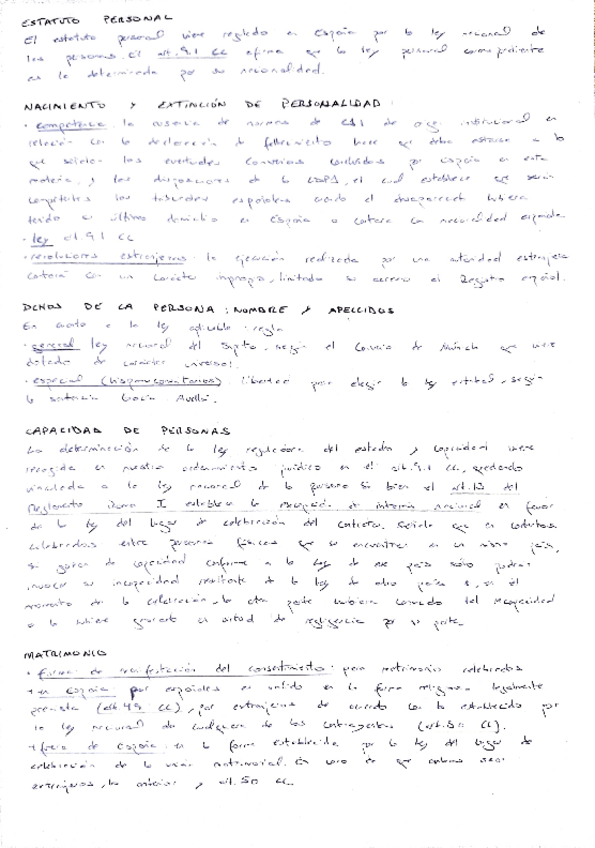 ESTATUTO PERSONAL
El estatuto personal viene regulado en España por la ley nacional de
las personas. El art. 9.1 CC afirma que la ley personal correspondiente
es la determinada por su nacionalidad.
NACIMIENTO Y EXTINCIÓN DE PERSONALIDAD:
· competencia: la ausencia de normas de CJI de origen institucional en
relación con la declaración de fallecimiento hace que deba estarse a lo
que señalen los eventuales convenios concluidos por España en esta
materia, y las disposiciones de la LOPJ, el cual establece que serán
competentes los tribunales españoles cuando el desaparecido hubiera
tenido su último domicilio en España o contara con nacionalidad española
· ley: art. 9.1 CC
· resoluciones extranjeras: la ejecución realizada por una autoridad extranjera
contará con un carácter impropio, limitado su acceso al Registro español.
DCHOS DE LA PERSONA: NOMBRE Y APELLIDOS
En cuanto a la ley aplicable: regla
· general: ley nacional del sujeto, según el Convenio de Múnich que viene
dotado de carácter universal.
· especial (hispanocomunitarios): libertad para elegir la ley, según
la sentencia García Avello.
CAPACIDAD DE PERSONAS
La determinación de la ley reguladora del estado y capacidad viene
recogida en nuestro ordenamiento jurídico en el art. 9.1 CC, quedando
vinculada a la ley nacional de la persona. Si bien el art. 13 del
Reglamento Roma I establece la excepción de interés nacional en favor
de la ley del lugar de celebración del contrato. Señala que en contratos
celebrados entre personas físicas que se encuentren en un mismo país,
si gozan de capacidad conforme a la ley de ese país sólo podrán
invocar su incapacidad resultante de la ley de otro país si, en el
momento de la celebración, la otra parte hubiera conocido tal incapacidad
o la hubiera ignorado en virtud de negligencia por su parte.
MATRIMONIO
· Forma de manifestación del consentimiento: para matrimonios celebrados
+ en España por españoles es válido en la forma religiosa legalmente
prevista (art. 49 CC), por extranjeros de acuerdo con lo establecido por
la ley nacional de cualquiera de los contrayentes (art. 50 CC).
+ fuera de España: en la forma establecida por la ley del lugar de
celebración de la unión matrimonial. En caso de que ambos sean
extranjeros, lo anterior y art. 50 CC.